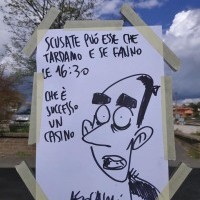 SCUSATE PUÓ ESSE CHE
TARDAMO E SE FANNO
LE 16:30
CHE È
SUCCESSO
UN
CASINO